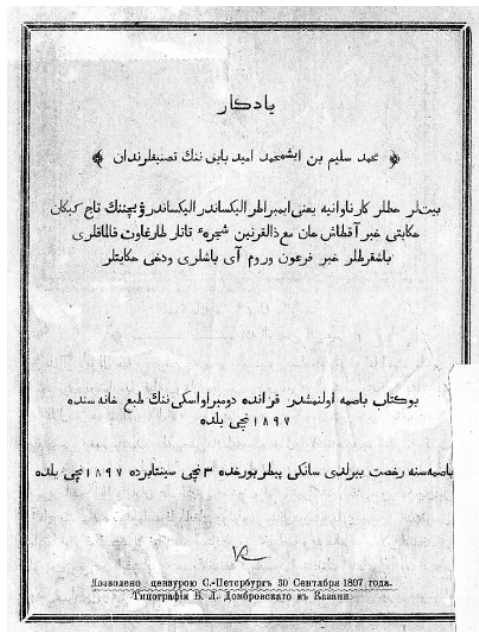 يادكار
محمد سليم بن ايشمحمد اميد بابنى ننك تصنيفلرندان
بيت‌لر خطلر كارناوانيه يعنى ايمبراطر اليكساندر اليكساندرۋيچننك تاج كيكان
حكايتى خبر آقطاش خان مع ذالقرنين شجرهء تاتار طارغاوت قالماقلرى
باشقرطلر خبر فرعون وروم آى باشلرى ودخى حكايتلر
بو كتاب باصمه اولنمشدر قزانده دومبراواسكى ننك طبع خانه سنده
١٨٩٧ نچى يلده
باصمه‌سنه رخصت بيرلدى سانكى پيطربورغده ٣ نچى سينتابرده ١٨٩٧ نچى يلده
Дозволено цензурою С.-Петербургъ 30 Сентября 1897 года.
Типографія Б. Л. Домбровскаго въ Казани.